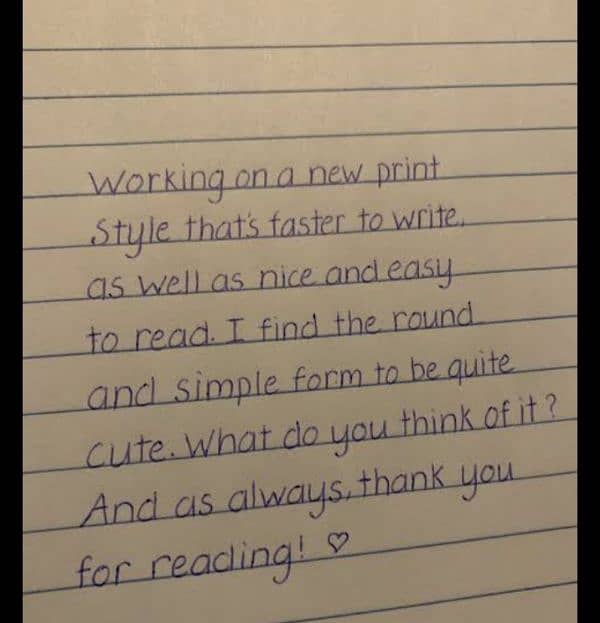 Working on a new print
style that's faster to write,
as well as nice and easy
to read. I find the round
and simple form to be quite
cute. What do you think of it?
And as always, thank you
for reading! ♡